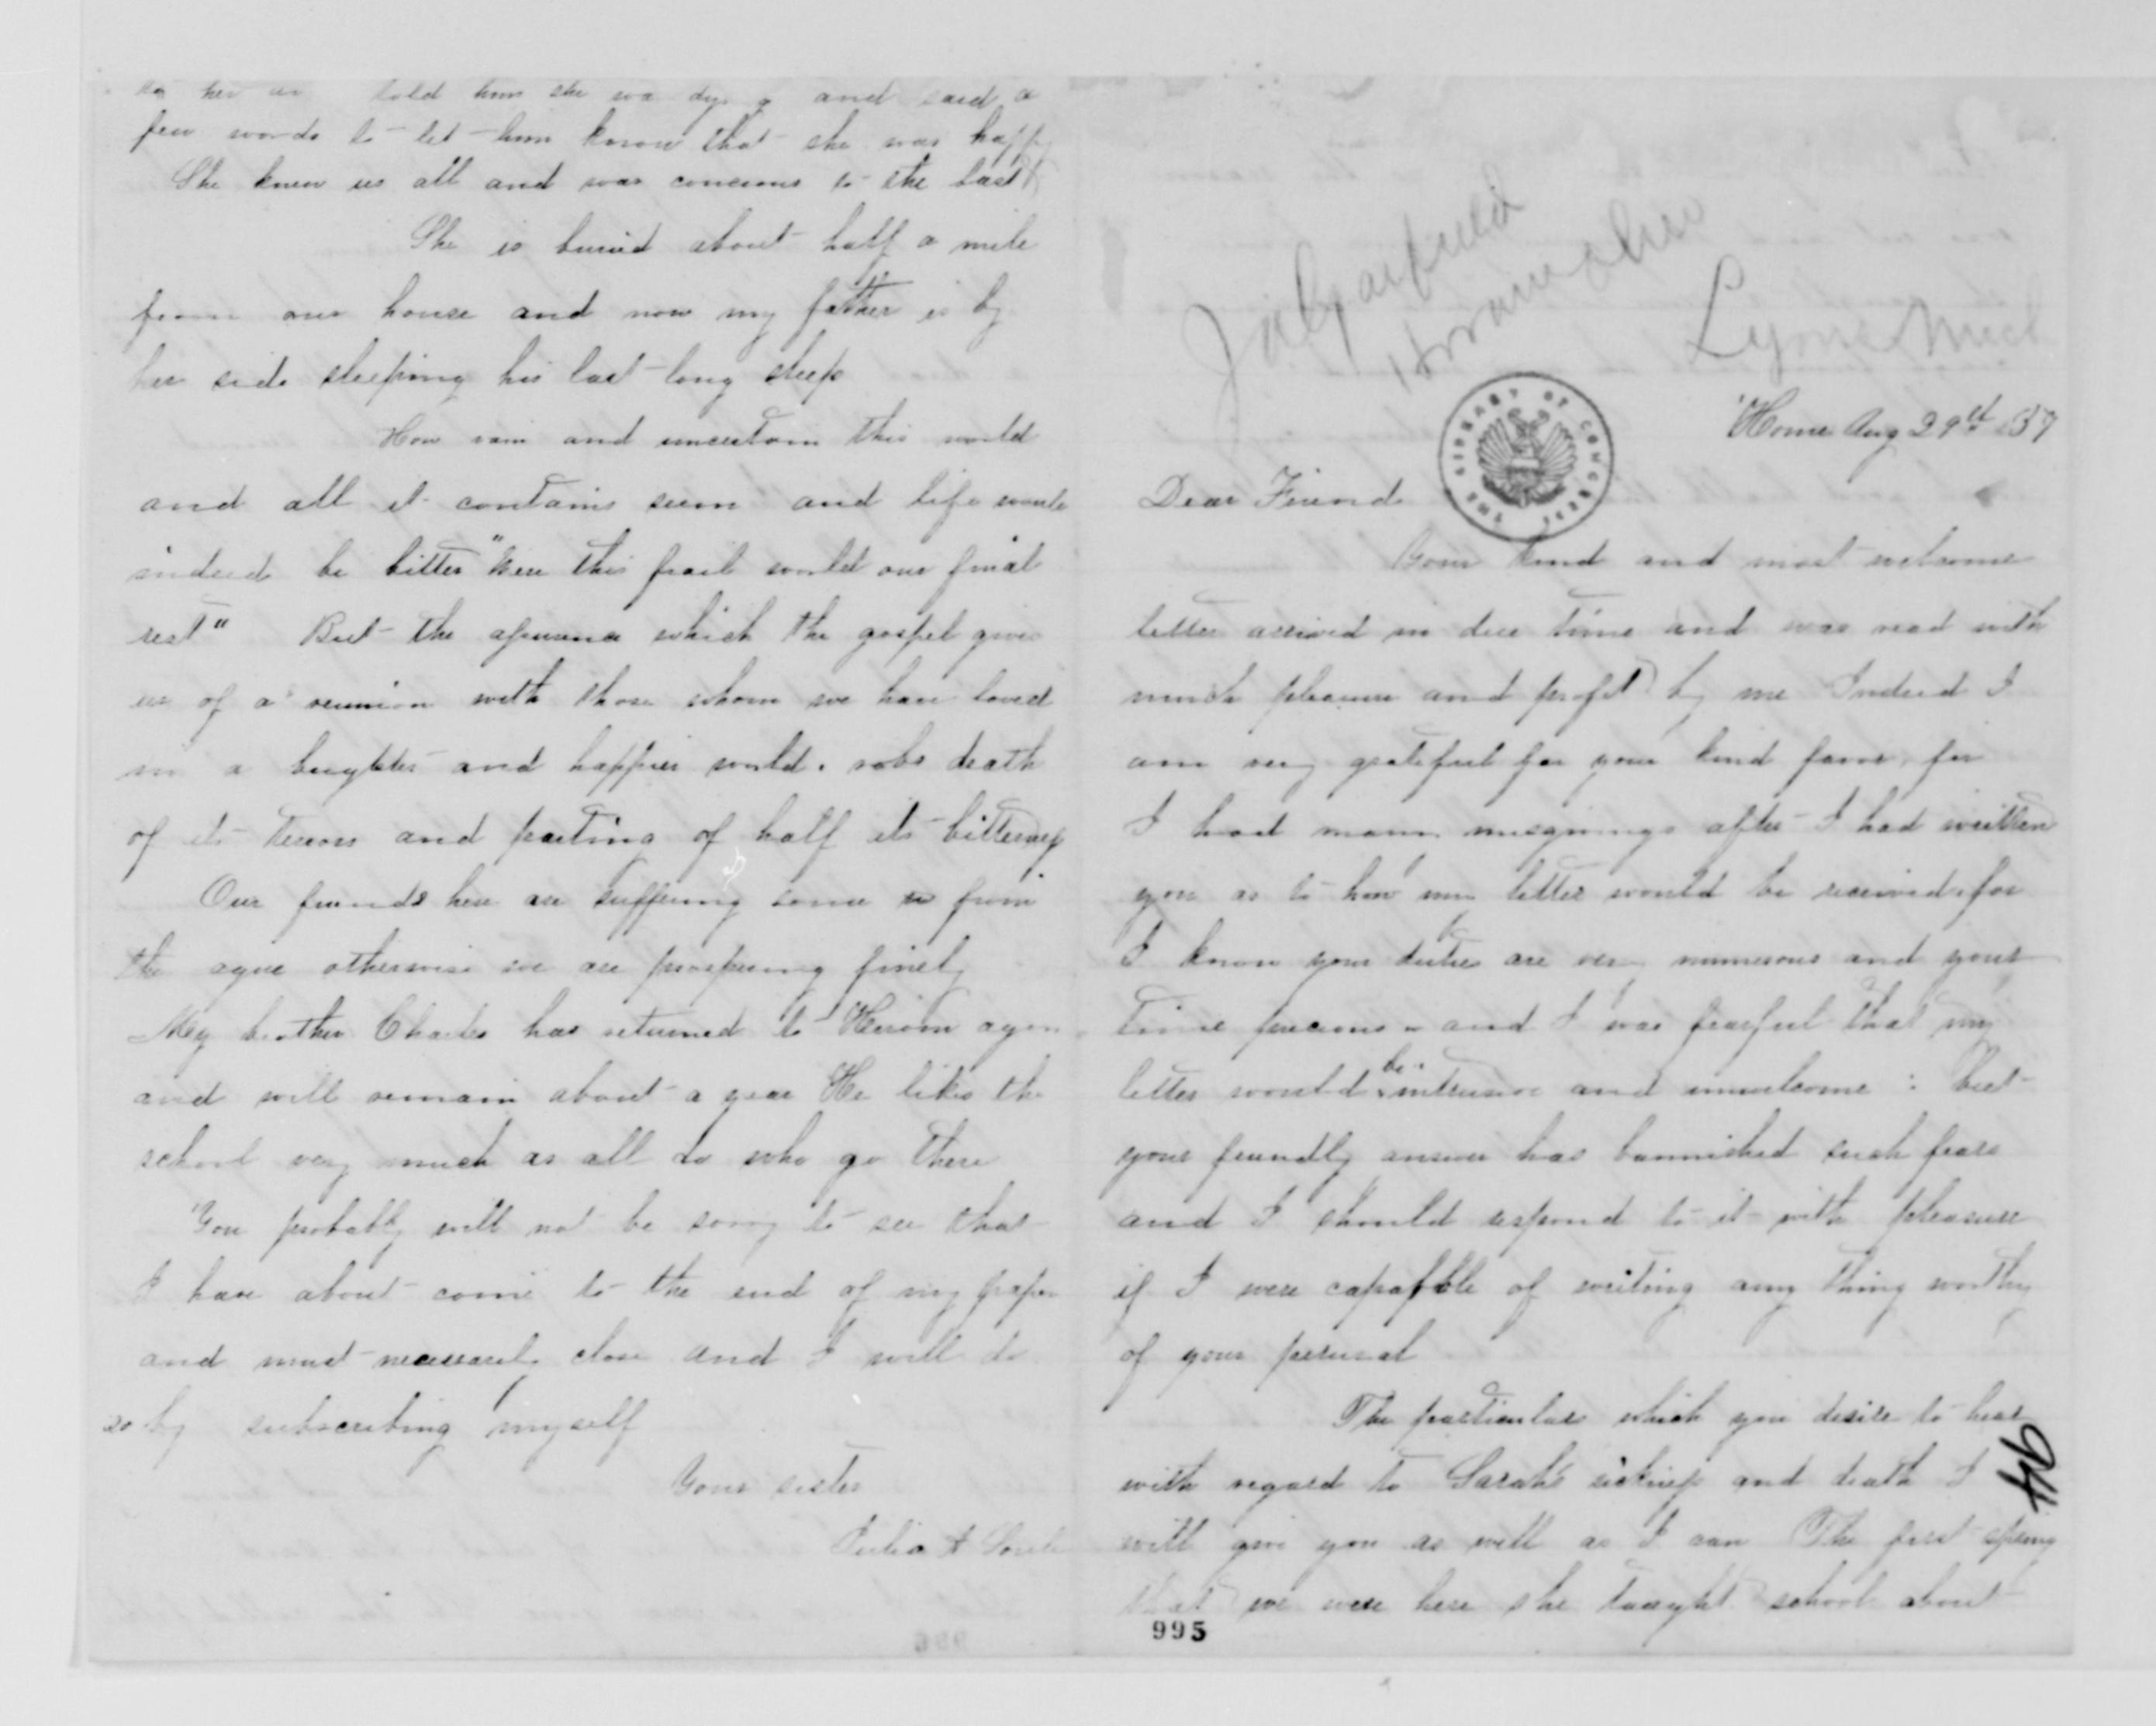 J A Garfield
Hiram Ohio
Lyons Mich
Home Aug 29th 57
THE LIBRARY OF CONGRESS
Dear Friend
Your kind and most welcome
letter arrived in due time and was read with
much pleasure and profit by me Indeed I
am very grateful for your kind favor, for
I had many misgivings after I had written
you as to how my letter would be received for
I know your duties are very numerous and your
time precious and I was fearful that my
letter would be intrusive and unwelcome : but
your friendly answer has bannished such fears
and I should respond to it with pleasure
if I were capabble of writing any thing worthy
of your perusal
The particulars which you desire to hear
with regard to Sarah's sickness and death I
will give you as well as I can The first spring
that we were here she taught school about
94
995
to her told him she was dying and said a
few words to let him know that she was happy
She knew us all and was concious to the last
She is buried about half a mile
from our house and now my father is by
her side sleeping his last long sleep
How vain and uncertain this world
and all it contains seem and life would
indeed be bitter "were this frail world our final
rest" But the assurance which the gospel gives
us of a reunion with those whom we have loved
in a brighter and happier world. robs death
of its terrors and parting of half its bitterness
Our friends here are suffering some from
the ague otherwise we are prospering finely
My brother Charles has returned to Hiram again
and will remain about a year He likes the
school very much as all do who go there
You probably will not be sorry to see that
I have about come to the end of my paper
and must necessarily close and I will do
so by subscribing myself
Your sister
Julia A